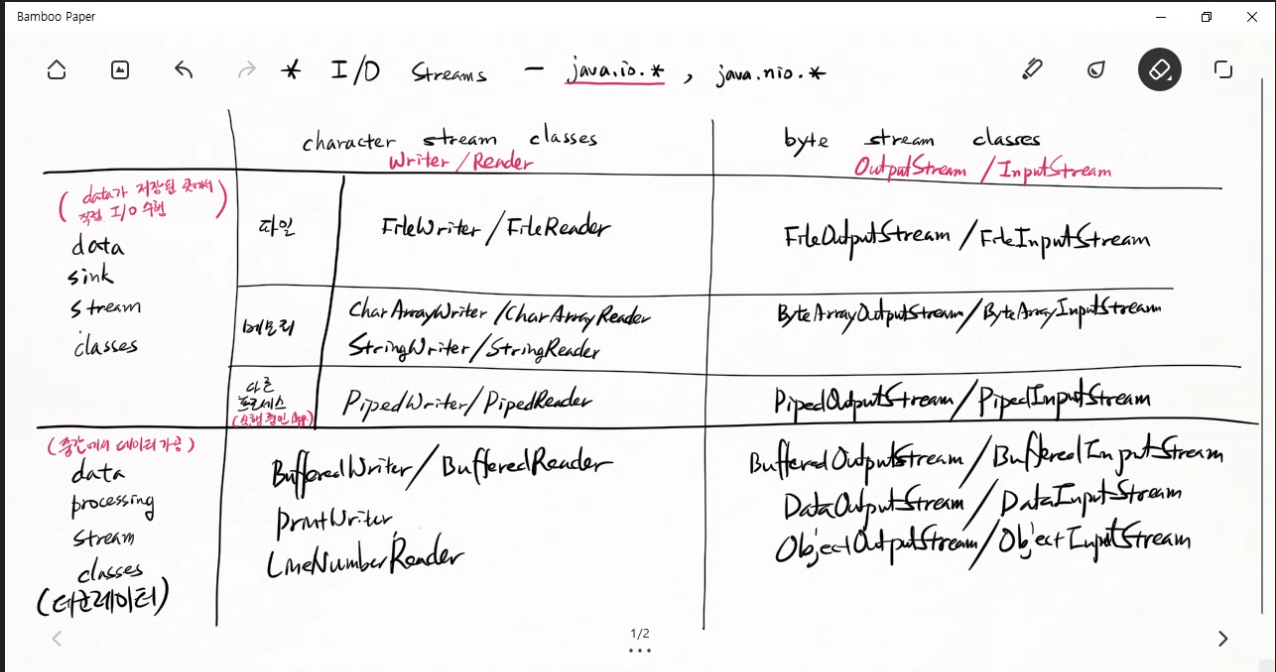 Bamboo Paper
* I/O Streams - java.io.* , java.nio.*
character stream classes
Writer/Reader
byte stream classes
OutputStream / InputStream
(data가 저장된 곳에서
직접 I/O 수행)
data
sink
stream
classes
파일
FileWriter/FileReader
FileOutputStream/FileInputStream
메모리
CharArrayWriter/CharArrayReader
StringWriter/StringReader
ByteArrayOutputStream/ByteArrayInputStream
다른
프로세스
(실행중인 App)
PipedWriter/PipedReader
PipedOutputStream/PipedInputStream
(중간에서 데이터 가공)
data
processing
stream
classes
(데코레이터)
BufferedWriter/BufferedReader
PrintWriter
LineNumberReader
BufferedOutputStream/BufferedInputStream
DataOutputStream/DataInputStream
ObjectOutputStream/ObjectInputStream
1/2